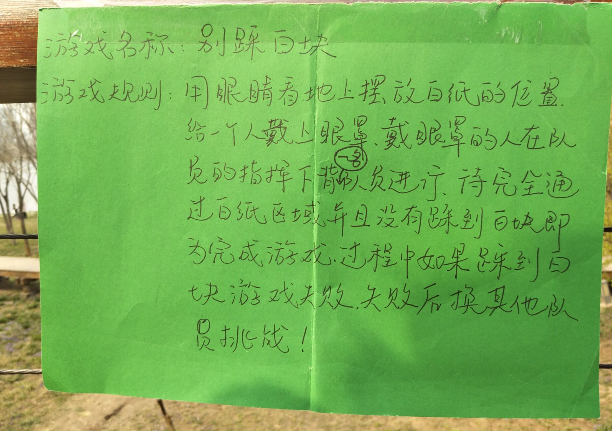 游戏名称：别踩白块
游戏规则：用眼睛看地上摆放白纸的位置.
给一个人戴上眼罩、戴眼罩的人在队
员的指挥下背一名队员进行、待完全通
过白纸区域并且没有踩到白块即
为完成游戏.过程中如果踩到白
块游戏失败.失败后换其他队
员挑战！